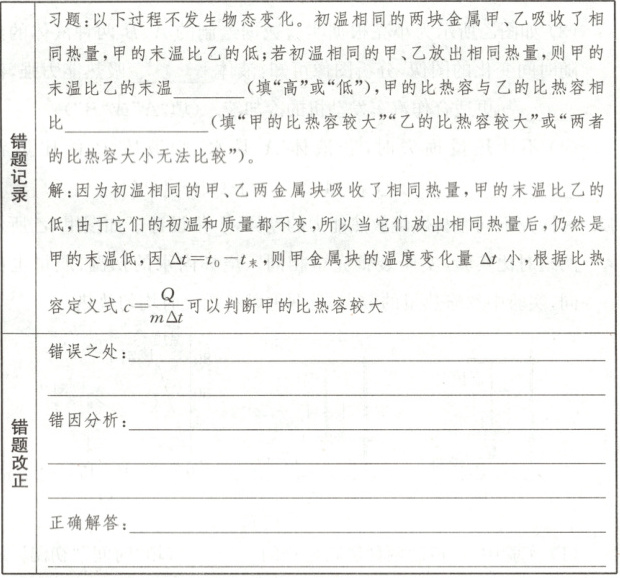 错题记录
习题:以下过程不发生物态变化。初温相同的两块金属甲、乙吸收了相
同热量,甲的末温比乙的低;若初温相同的甲、乙放出相同热量,则甲的
末温比乙的末温________(填“高”或“低”),甲的比热容与乙的比热容相
比________________(填“甲的比热容较大”“乙的比热容较大”或“两者
的比热容大小无法比较”)。
解:因为初温相同的甲、乙两金属块吸收了相同热量,甲的末温比乙的
低,由于它们的初温和质量都不变,所以当它们放出相同热量后,仍然是
甲的末温低,因 Δt=t₀-t末,则甲金属块的温度变化量 Δt 小,根据比热
容定义式 c=Q/mΔt 可以判断甲的比热容较大
错题改正
错误之处:
错因分析:
正确解答: